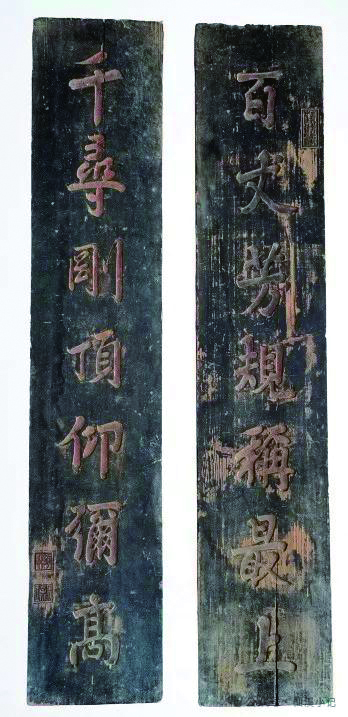 百丈芳規稱最上
千尋剛頂仰彌高